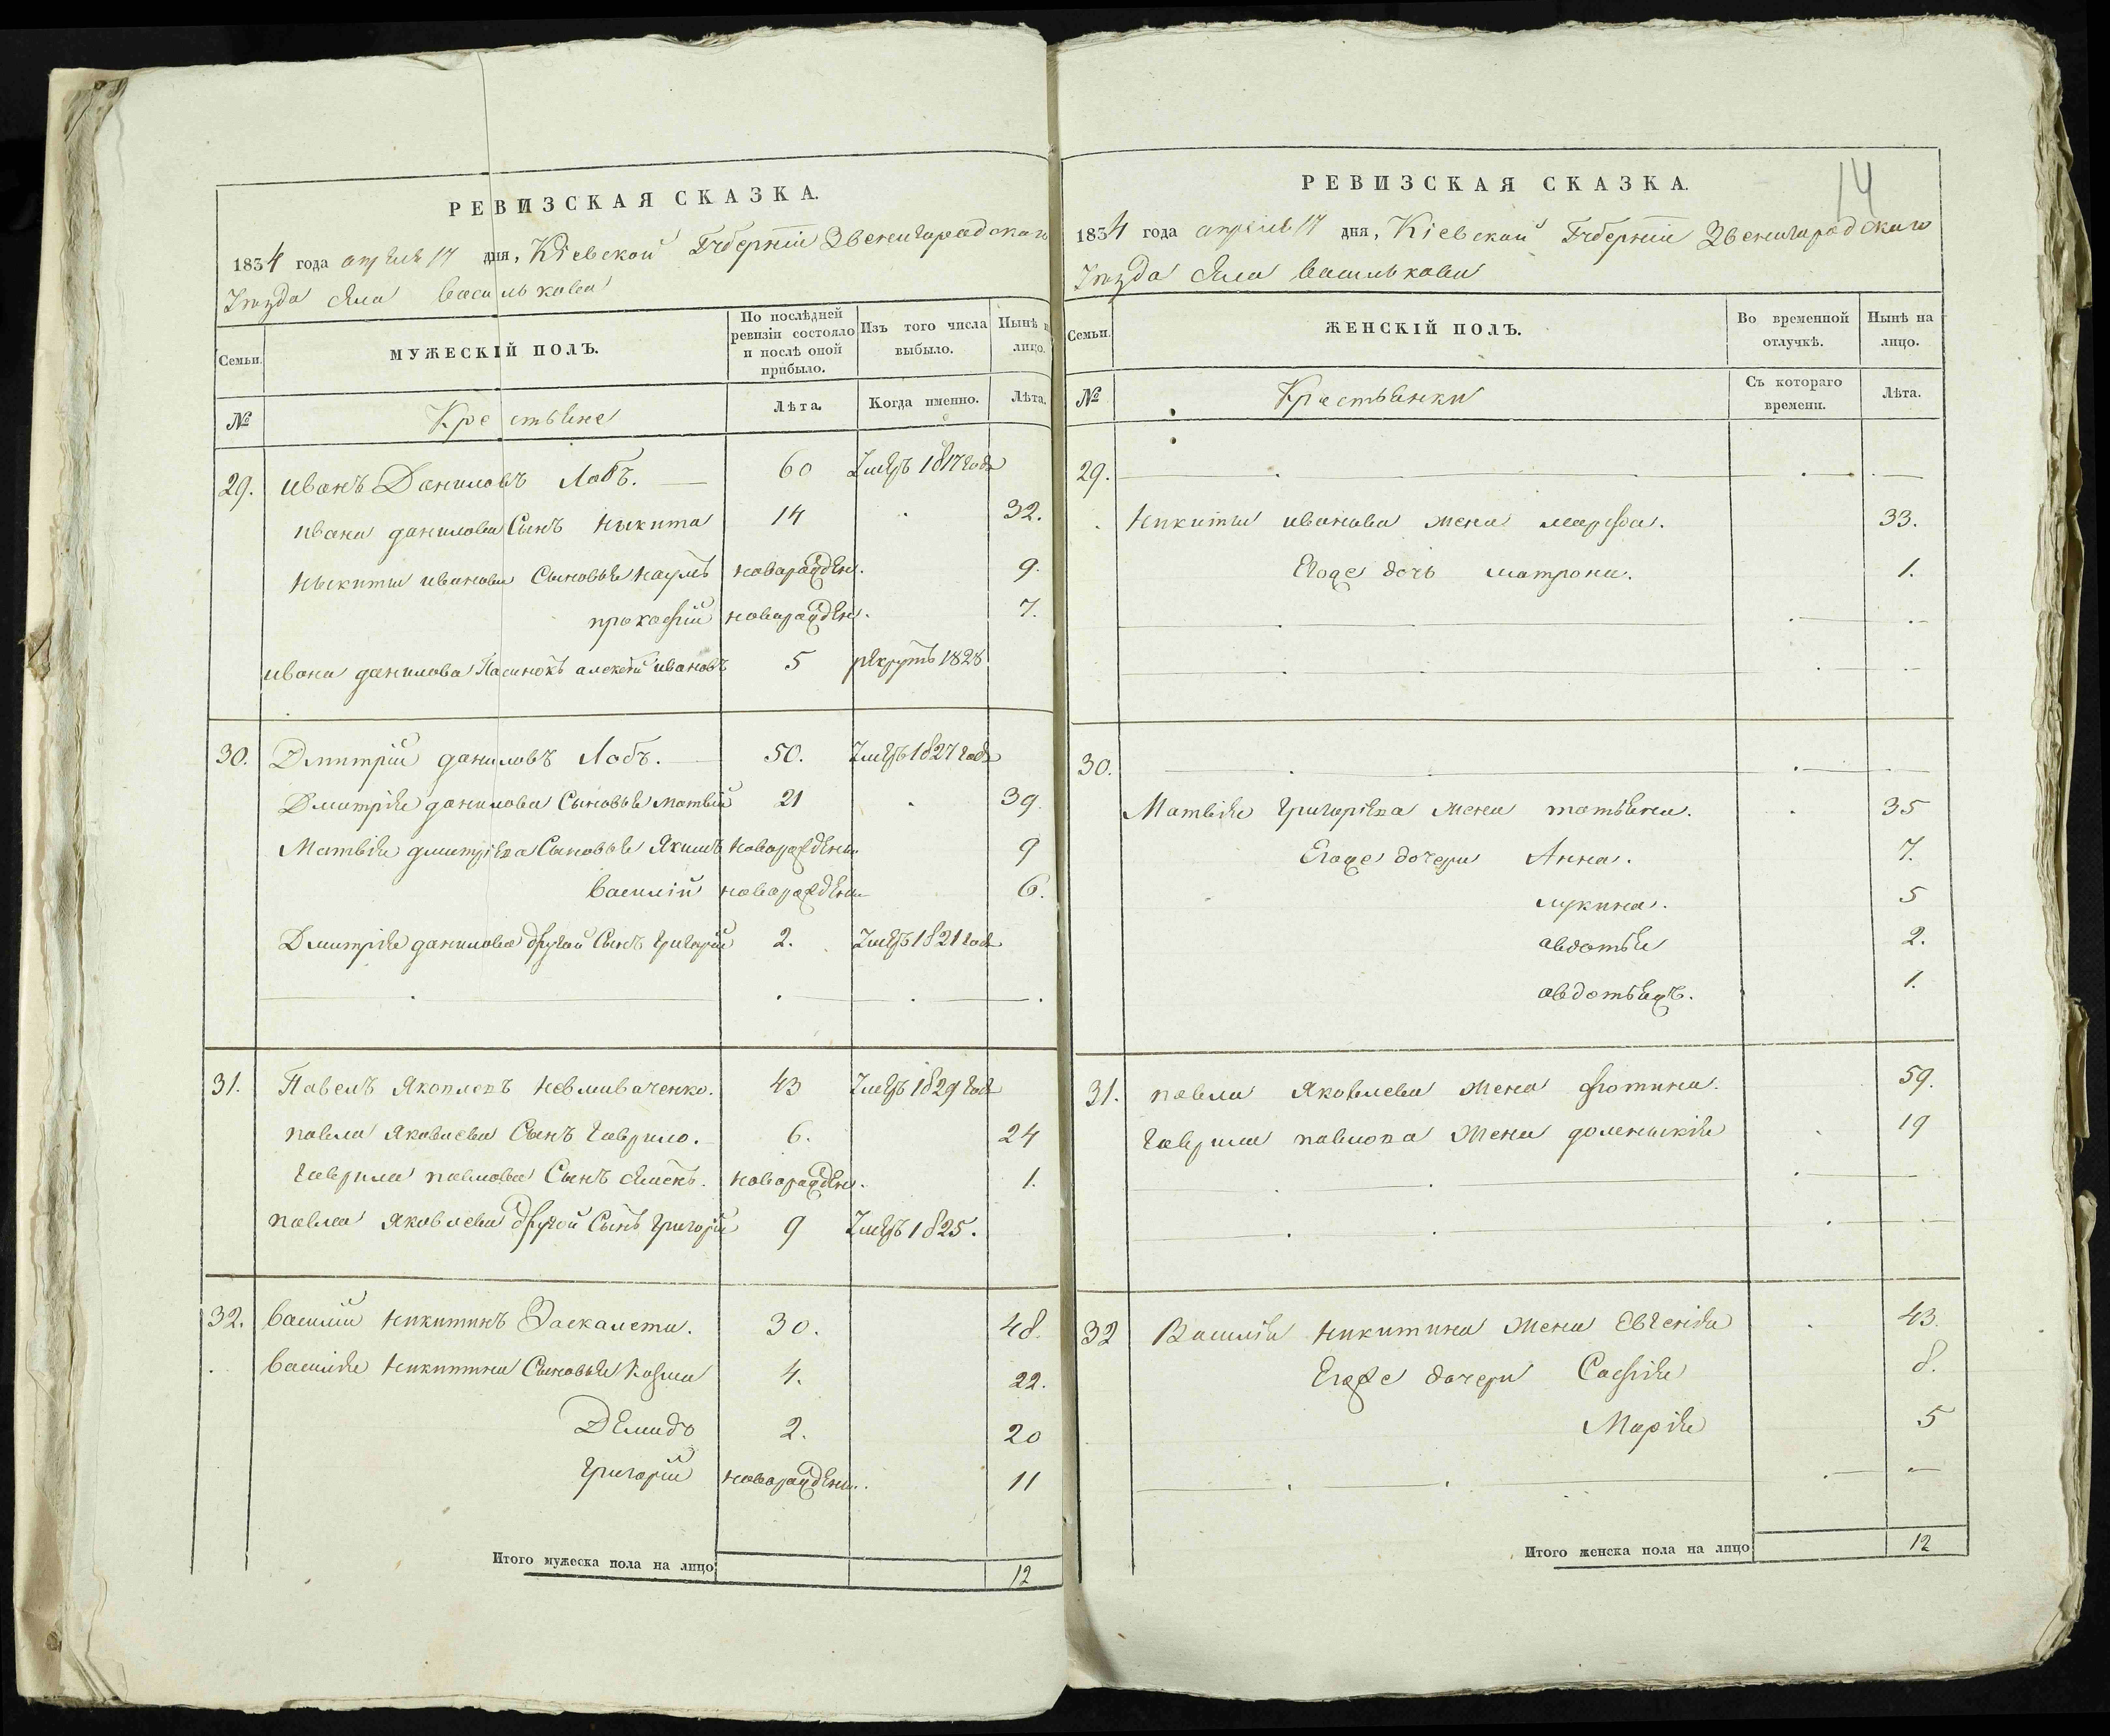 РЕВИЗСКАЯ СКАЗКА.
1834 года апреля 17 дня, Кіевской Губерніи Звенигородскаго
Уѣзда села Василькова
Семьи.
МУЖЕСКІЙ ПОЛЪ.
По послѣдней ревизіи состояло и послѣ оной прибыло.
Изъ того числа выбыло.
Нынѣ на лицо.
№
Крестьяне
Лѣта.
Когда именно.
Лѣта.
29. иванъ Даниловъ Лобъ. 60 Умеръ 1817 года
ивана данилова Сынъ Никита 14 32.
Никиты иванова Сыновья наумъ новорожден. 9.
прокофій новорожден. 7.
ивана данилова Пасинокъ алексѣй ивановъ 5 рекрутъ 1828
30. Дмитрій даниловъ Лобъ. 50. Умеръ 1827 года
Дмитрія данилова Сыновья матвій 21 39.
Матвія дмитріева Сыновья Якимъ новорожденъ 9
василій новорожден 6.
Дмитрія данилова другой Сынъ григорій 2. Умеръ 1821 года
31. Павелъ Яковлевъ невмиваченко. 43 Умеръ 1829 года
павла Яковлева Сынъ гаврило. 6. 24
гаврила павлова Сынъ новорожден. 1.
павла яковлева другой Сынъ григорій 9 Умеръ 1825.
32. василій никитинъ 30. 48.
василія никитина Сыновья козма 4. 22.
Демидъ 2. 20
григорій новорожден. 11
Итого мужеска пола на лицо 12
14
РЕВИЗСКАЯ СКАЗКА.
1834 года апреля 17 дня, Кіевской Губерніи Звенигородскаго
Уѣзда села Василькова
Семьи.
ЖЕНСКІЙ ПОЛЪ.
Во временной отлучкѣ.
Нынѣ на лицо.
№
Крестьянки
Съ котораго времени.
Лѣта.
29.
Никиты иванова жена марфа. 33.
Егоже дочь матрона. 1.
30.
Матвія григоріева жена татьяна. 35
Егоже дочери Анна. 7.
лукина. 5
авдотья 2.
авдотьяжъ. 1.
31. павла Яковлева жена фотина. 59.
гаврила павлова жена 19
32 Василія никитина жена Евгенія 43.
Егоже дочери Софія 8.
Марія 5
Итого женска пола на лицо 12